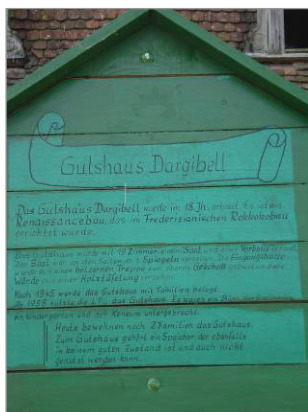 Gutshaus Dargibell
Das Gutshaus Dargibell wurde im 18. Jh. erbaut. Es ist ein
Renaissancebau, das im Frederisianischen Rokkokobau
errichtet wurde.
Das Gutshaus wurde mit 19 Zimmern einen Saal und einer
Der Saal war an den Seiten mit Spiegeln versehen. Die Eingangshalle
wurde mit einer holzernen Treppe zum oberen Geschoß
Würde mit einer Holztäfelung
Nach 1945 wurde das Gutshaus mit Familien belegt.
Ab 1955 nutzte die das Gutshaus. Es waren ein
ein Kindergarten und der Konsum untergebracht.
Heute bewohnen noch 2 Familien das Gutshaus.
Zum Gutshaus gehört ein Speicher, der ebenfalls
in keinem guten Zustand ist und auch nicht
genutzt werden kann.